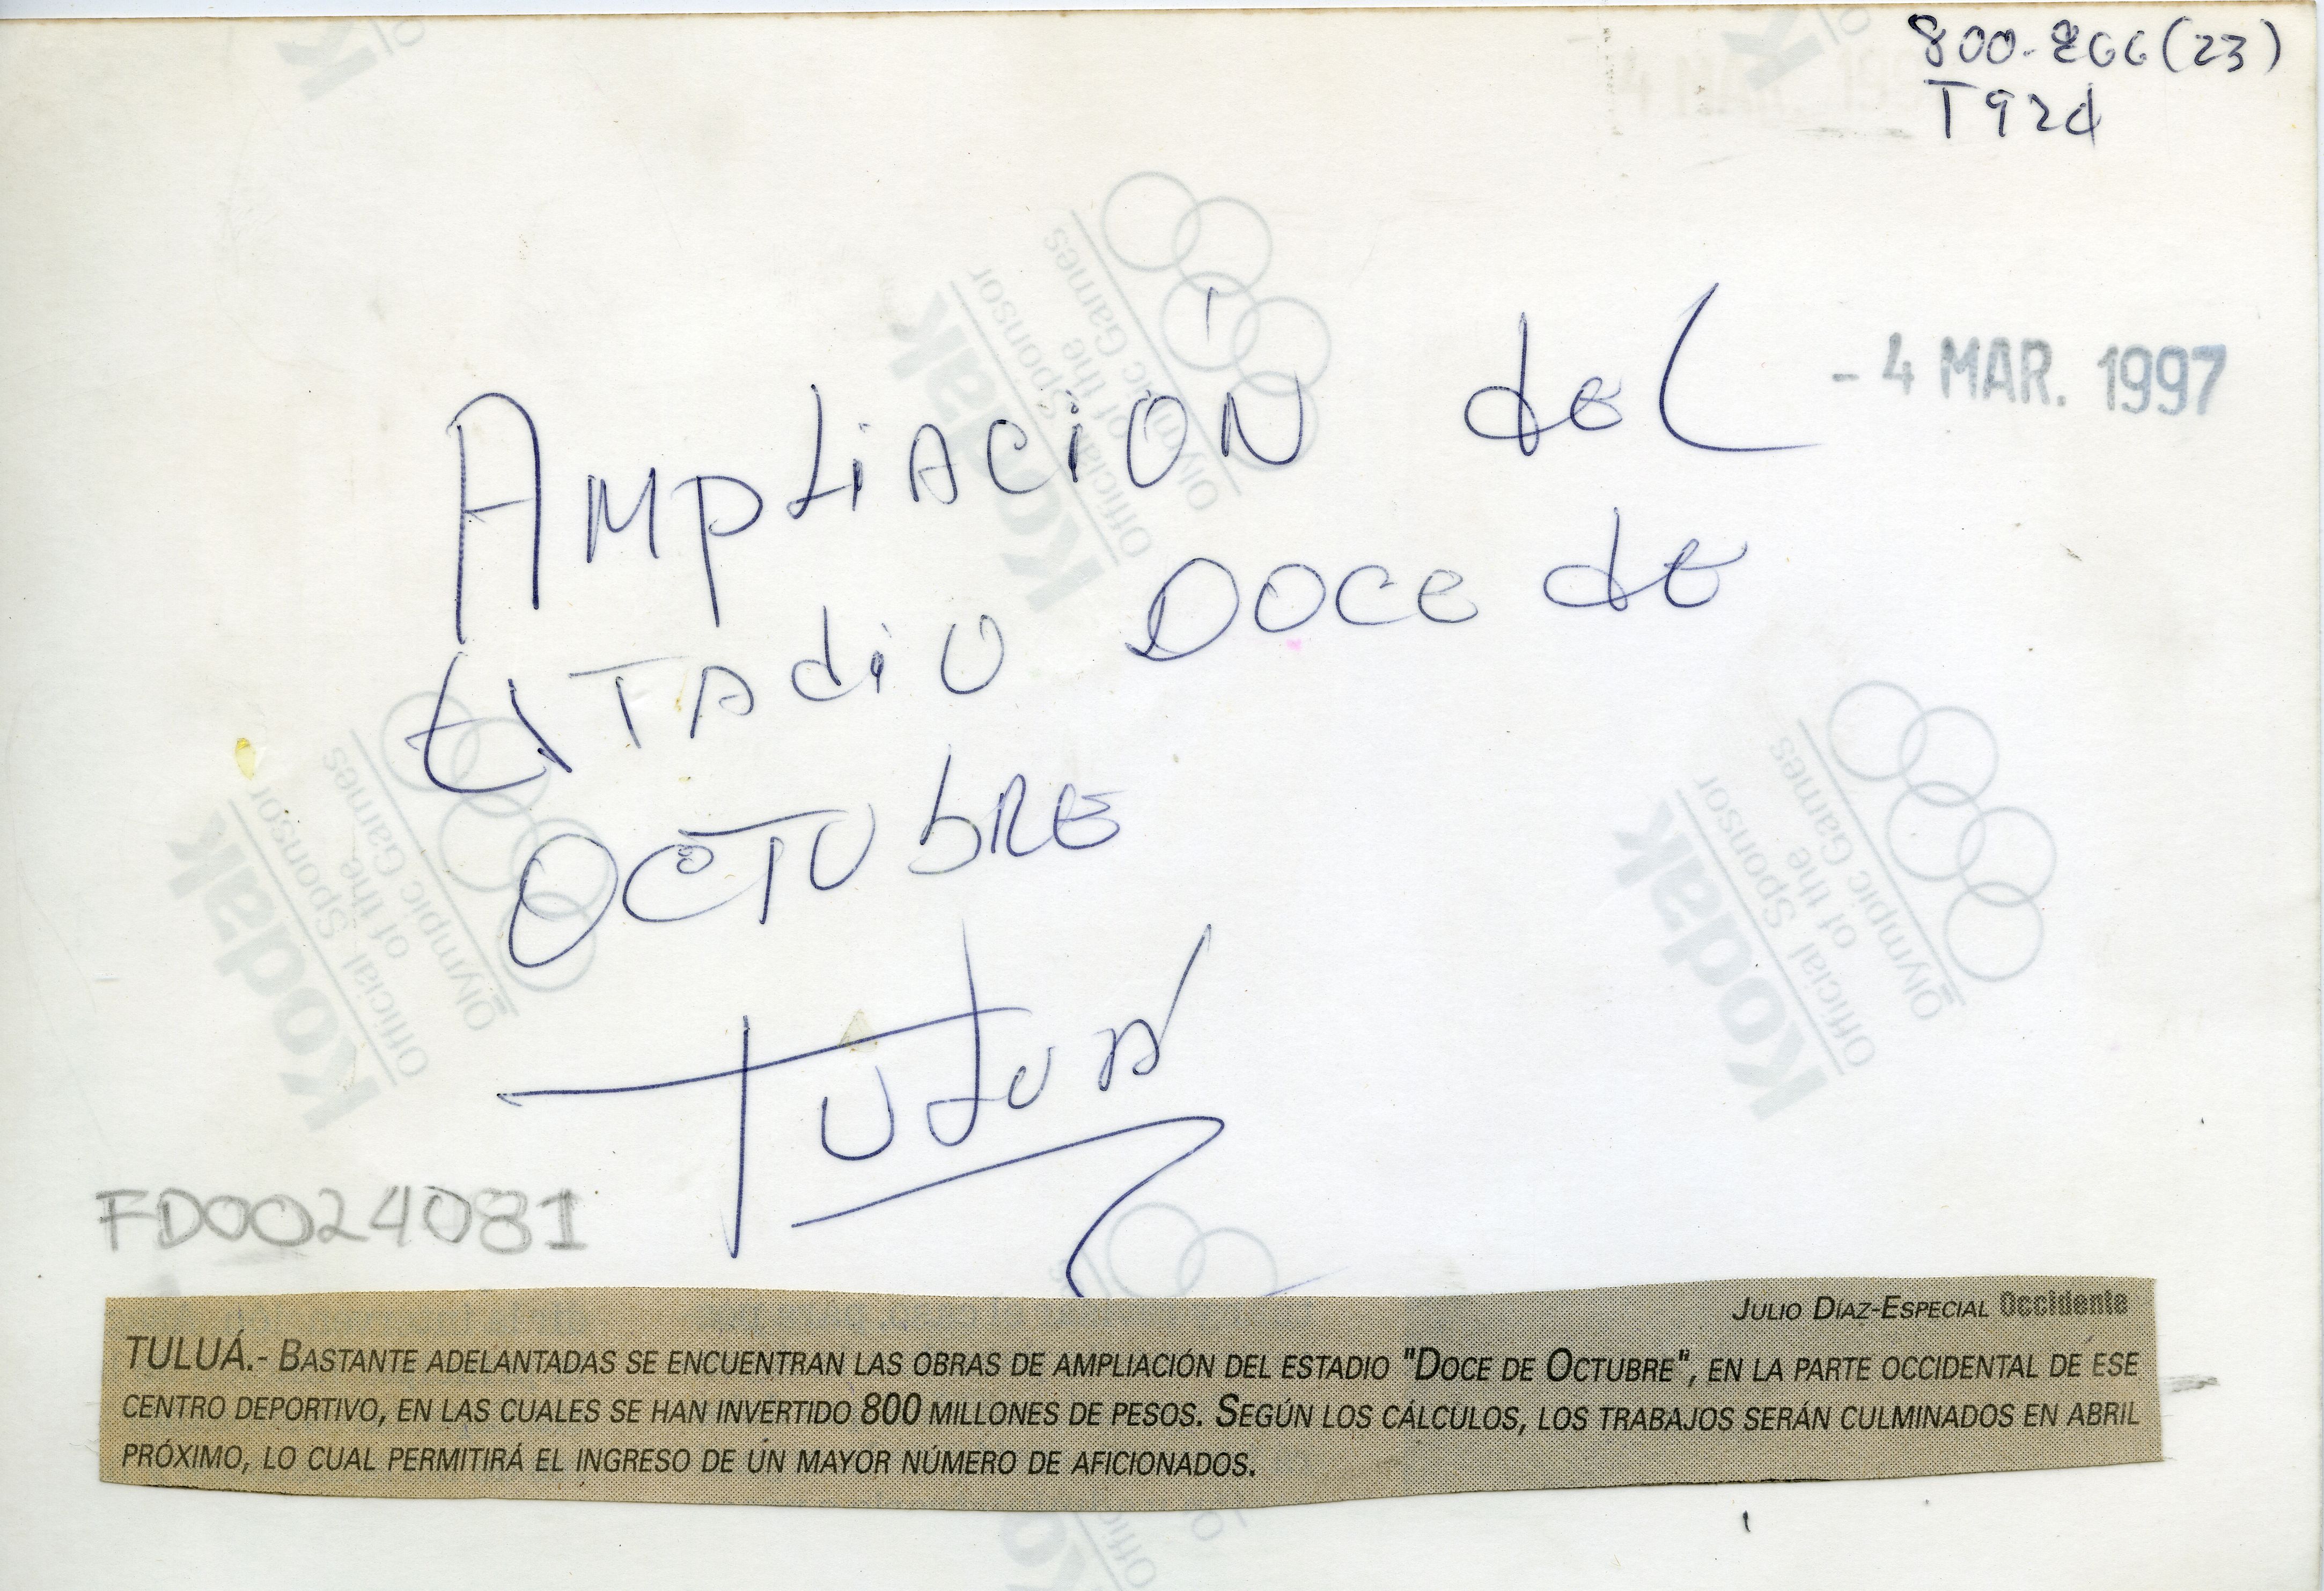 800-866(23)
T92d
- 4 MAR. 1997
AMPLIACIÓN del
ESTADIO DOCE de
OCTUBRE
TULUÁ
FD0024081
JULIO DÍAZ-ESPECIAL Occidente
TULUÁ.- BASTANTE ADELANTADAS SE ENCUENTRAN LAS OBRAS DE AMPLIACIÓN DEL ESTADIO "DOCE DE OCTUBRE", EN LA PARTE OCCIDENTAL DE ESE
CENTRO DEPORTIVO, EN LAS CUALES SE HAN INVERTIDO 800 MILLONES DE PESOS. SEGÚN LOS CÁLCULOS, LOS TRABAJOS SERÁN CULMINADOS EN ABRIL
PRÓXIMO, LO CUAL PERMITIRÁ EL INGRESO DE UN MAYOR NÚMERO DE AFICIONADOS.
Kodak
Official Sponsor
of the
Olympic Games
Kodak
Official Sponsor
of the
Olympic Games
Kodak
Official Sponsor
of the
Olympic Games